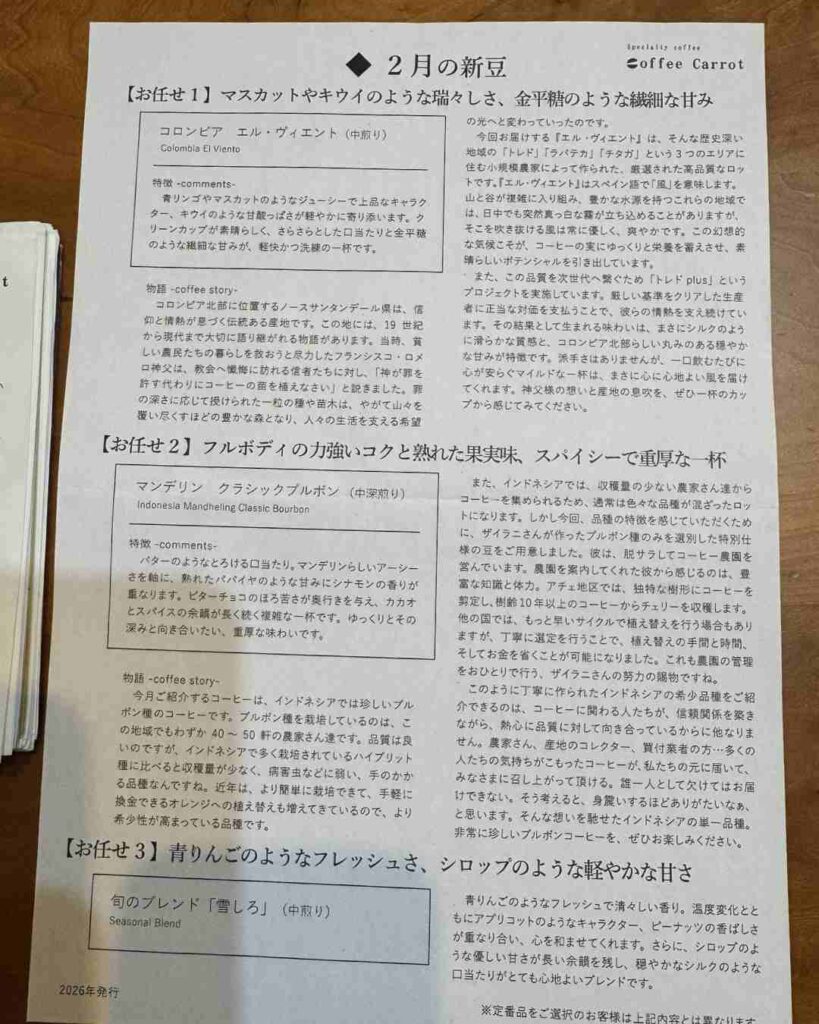 ◆ ２月の新豆
Specialty coffee
Coffee Carrot
【お任せ１】マスカットやキウイのような瑞々しさ、金平糖のような繊細な甘み
コロンビア　エル・ヴィエント（中煎り）
Colombia El Viento
特徴 -comments-
青リンゴやマスカットのようなジューシーで上品なキャラク
ター、キウイのような甘酸っぱさが軽やかに寄り添います。ク
リーンカップが素晴らしく、さらさらとした口当たりと金平糖
のような繊細な甘みが、軽快かつ洗練の一杯です。
物語 -coffee story-
コロンビア北部に位置するノースサンタンデール県は、信
仰と情熱が息づく伝統ある産地です。この地には、19 世紀
から現代まで大切に語り継がれる物語があります。当時、貧
しい農民たちの暮らしを救おうと尽力したフランシスコ・ロメ
ロ神父は、教会へ懺悔に訪れる信者たちに対し、「神が罪を
許す代わりにコーヒーの苗を植えなさい」と説きました。罪
の深さに応じて授けられた一粒の種や苗木は、やがて山々を
覆い尽くすほどの豊かな森となり、人々の生活を支える希望
の光へと変わっていったのです。
今回お届けする『エル・ヴィエント』は、そんな歴史深い
地域の「トレド」「ラバテカ」「チタガ」という３つのエリアに
住む小規模農家によって作られた、厳選された高品質なロッ
トです。『エル・ヴィエント』はスペイン語で「風」を意味します。
山と谷が複雑に入り組み、豊かな水源を持つこれらの地域で
は、日中でも突然真っ白な霧が立ち込めることがありますが、
そこを吹き抜ける風は常に優しく、爽やかです。この幻想的
な気候こそが、コーヒーの実にゆっくりと栄養を蓄えさせ、素
晴らしいポテンシャルを引き出しています。
また、この品質を次世代へ繋ぐため「トレド plus」という
プロジェクトを実施しています。厳しい基準をクリアした生産
者に正当な対価を支払うことで、彼らの情熱を支え続けてい
ます。その結果として生まれる味わいは、まさにシルクのよう
に滑らかな質感と、コロンビア北部らしい丸みのある穏やか
な甘みが特徴です。派手さはありませんが、一口飲むたびに
心が安らぐマイルドな一杯は、まさに心に心地よい風を届け
てくれます。神父様の想いと産地の息吹を、ぜひ一杯のカッ
プから感じてみてください。
【お任せ２】フルボディの力強いコクと熟れた果実味、スパイシーで重厚な一杯
マンデリン　クラシックブルボン（中深煎り）
Indonesia Mandheling Classic Bourbon
特徴 -comments-
バターのようなとろける口当たり。マンデリンらしいアーシー
さを軸に、熟れたパパイヤのような甘みにシナモンの香りが
重なります。ビターチョコのほろ苦さが奥行きを与え、カカオ
とスパイスの余韻が長く続く複雑な一杯です。ゆっくりとその
深みと向き合いたい、重厚な味わいです。
物語 -coffee story-
今月ご紹介するコーヒーは、インドネシアでは珍しいブル
ボン種のコーヒーです。ブルボン種を栽培しているのは、こ
の地域でもわずか 40 ～ 50 軒の農家さん達です。品質は良
いのですが、インドネシアで多く栽培されているハイブリット
種に比べると収穫量が少なく、病害虫などに弱い、手のかか
る品種なんですね。近年は、より簡単に栽培できて、手軽に
換金できるオレンジへの植え替えも増えてきているので、より
希少性が高まっている品種です。
また、インドネシアでは、収穫量の少ない農家さん達から
コーヒーを集められるため、通常は色々な品種が混ざったロッ
トになります。しかし今回、品種の特徴を感じていただくため
に、ザイラニさんが作ったブルボン種のみを選別した特別仕
様の豆をご用意しました。彼は、脱サラしてコーヒー農園を
営んでいます。農園を案内してくれた彼から感じるのは、豊
富な知識と体力。アチェ地区では、独特な樹形にコーヒーを
剪定し、樹齢10年以上のコーヒーからチェリーを収穫します。
他の国では、もっと早いサイクルで植え替えを行う場合もあり
ますが、丁寧に選定を行うことで、植え替えの手間と時間、
そしてお金を省くことが可能になりました。これも農園の管理
をおひとりで行う、ザイラニさんの努力の賜物ですね。
このように丁寧に作られたインドネシアの希少品種をご紹
介できるのは、コーヒーに関わる人たちが、信頼関係を築き
ながら、熱心に品質に対して向き合っているからに他なりま
せん。農家さん、産地のコレクター、買付業者の方…多くの
人たちの気持ちがこもったコーヒーが、私たちの元に届いて、
みなさまに召し上がって頂ける。誰一人として欠けてはお届
けできない。そう考えると、身震いするほどありがたいなぁ、
と思います。そんな想いを馳せたインドネシアの単一品種。
非常に珍しいブルボンコーヒーを、ぜひお楽しみください。
【お任せ３】青りんごのようなフレッシュさ、シロップのような軽やかな甘さ
旬のブレンド「雪しろ」（中煎り）
Seasonal Blend
青りんごのようなフレッシュで清々しい香り。温度変化とと
もにアプリコットのようなキャラクター、ピーナッツの香ばしさ
が重なり合い、心を和ませてくれます。さらに、シロップのよ
うな優しい甘さが長い余韻を残し、穏やかなシルクのような
口当たりがとても心地よいブレンドです。
2026年発行
※定番品をご選択のお客様は上記内容とは異なります